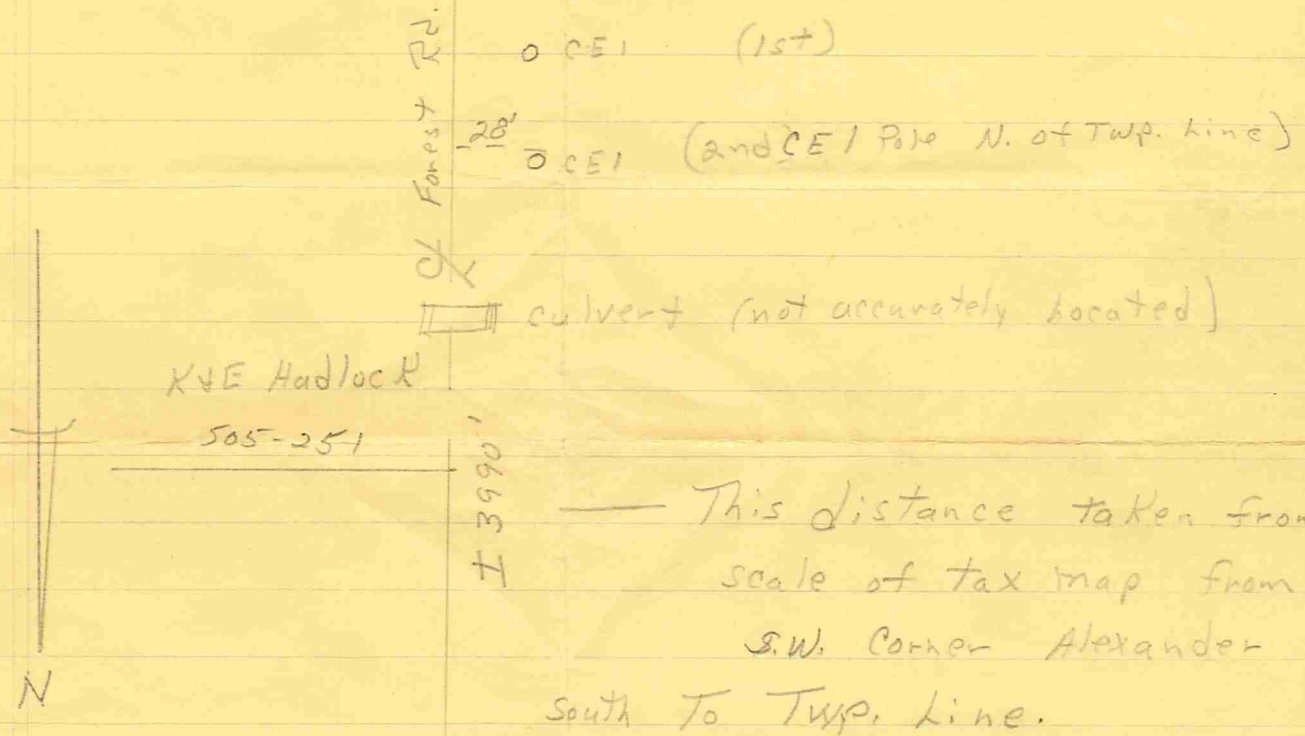 C/L Forest Rd.
o CEI (1st)
28'
o CEI (2nd CEI Pole N. of Twp. Line)
culvert (not accurately Located)
K&E Hadlock
505-251
± 3990'
— This distance taken from
scale of tax map from
S.W. Corner Alexander
South To Twp. Line.
N